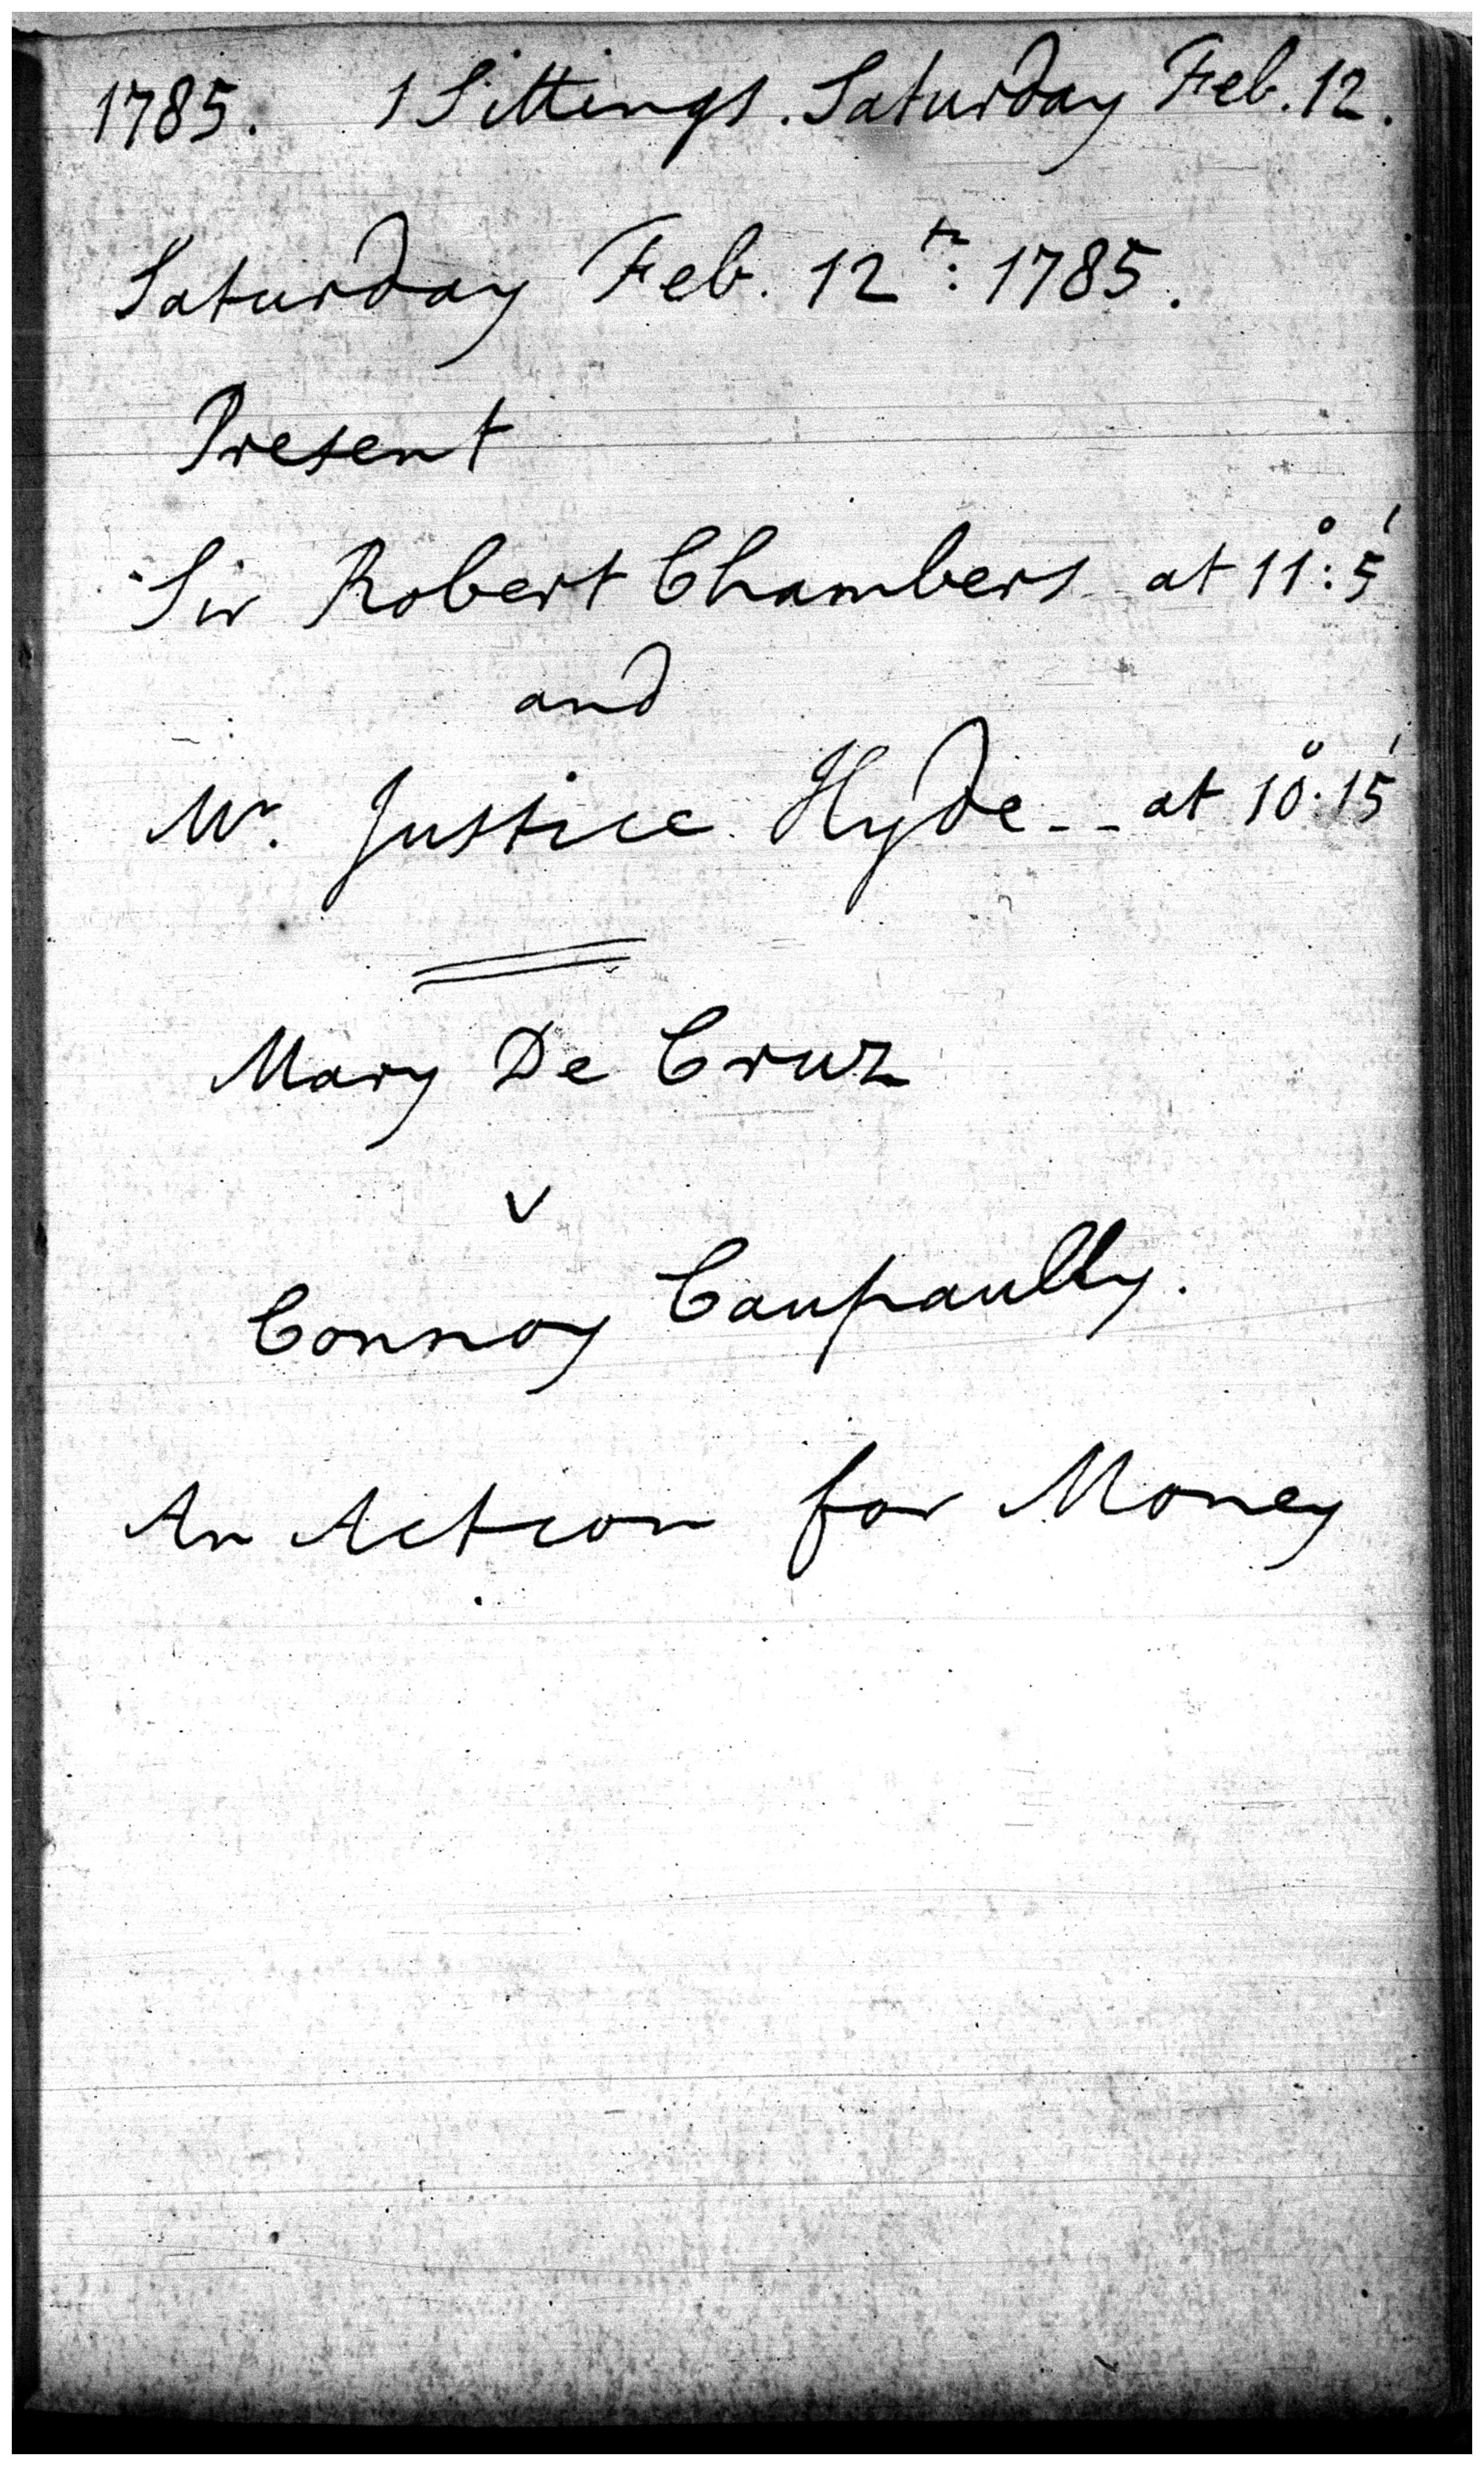 1785. 1 Sittings. Saturday Feb. 12.
Saturday Feb. 12th: 1785.
Present
Sir Robert Chambers - at 11°:5'
and
Mr. Justice Hyde -- at 10°.15'
Mary De Cruz
v
Connoy Caupaully.
An Action for Money